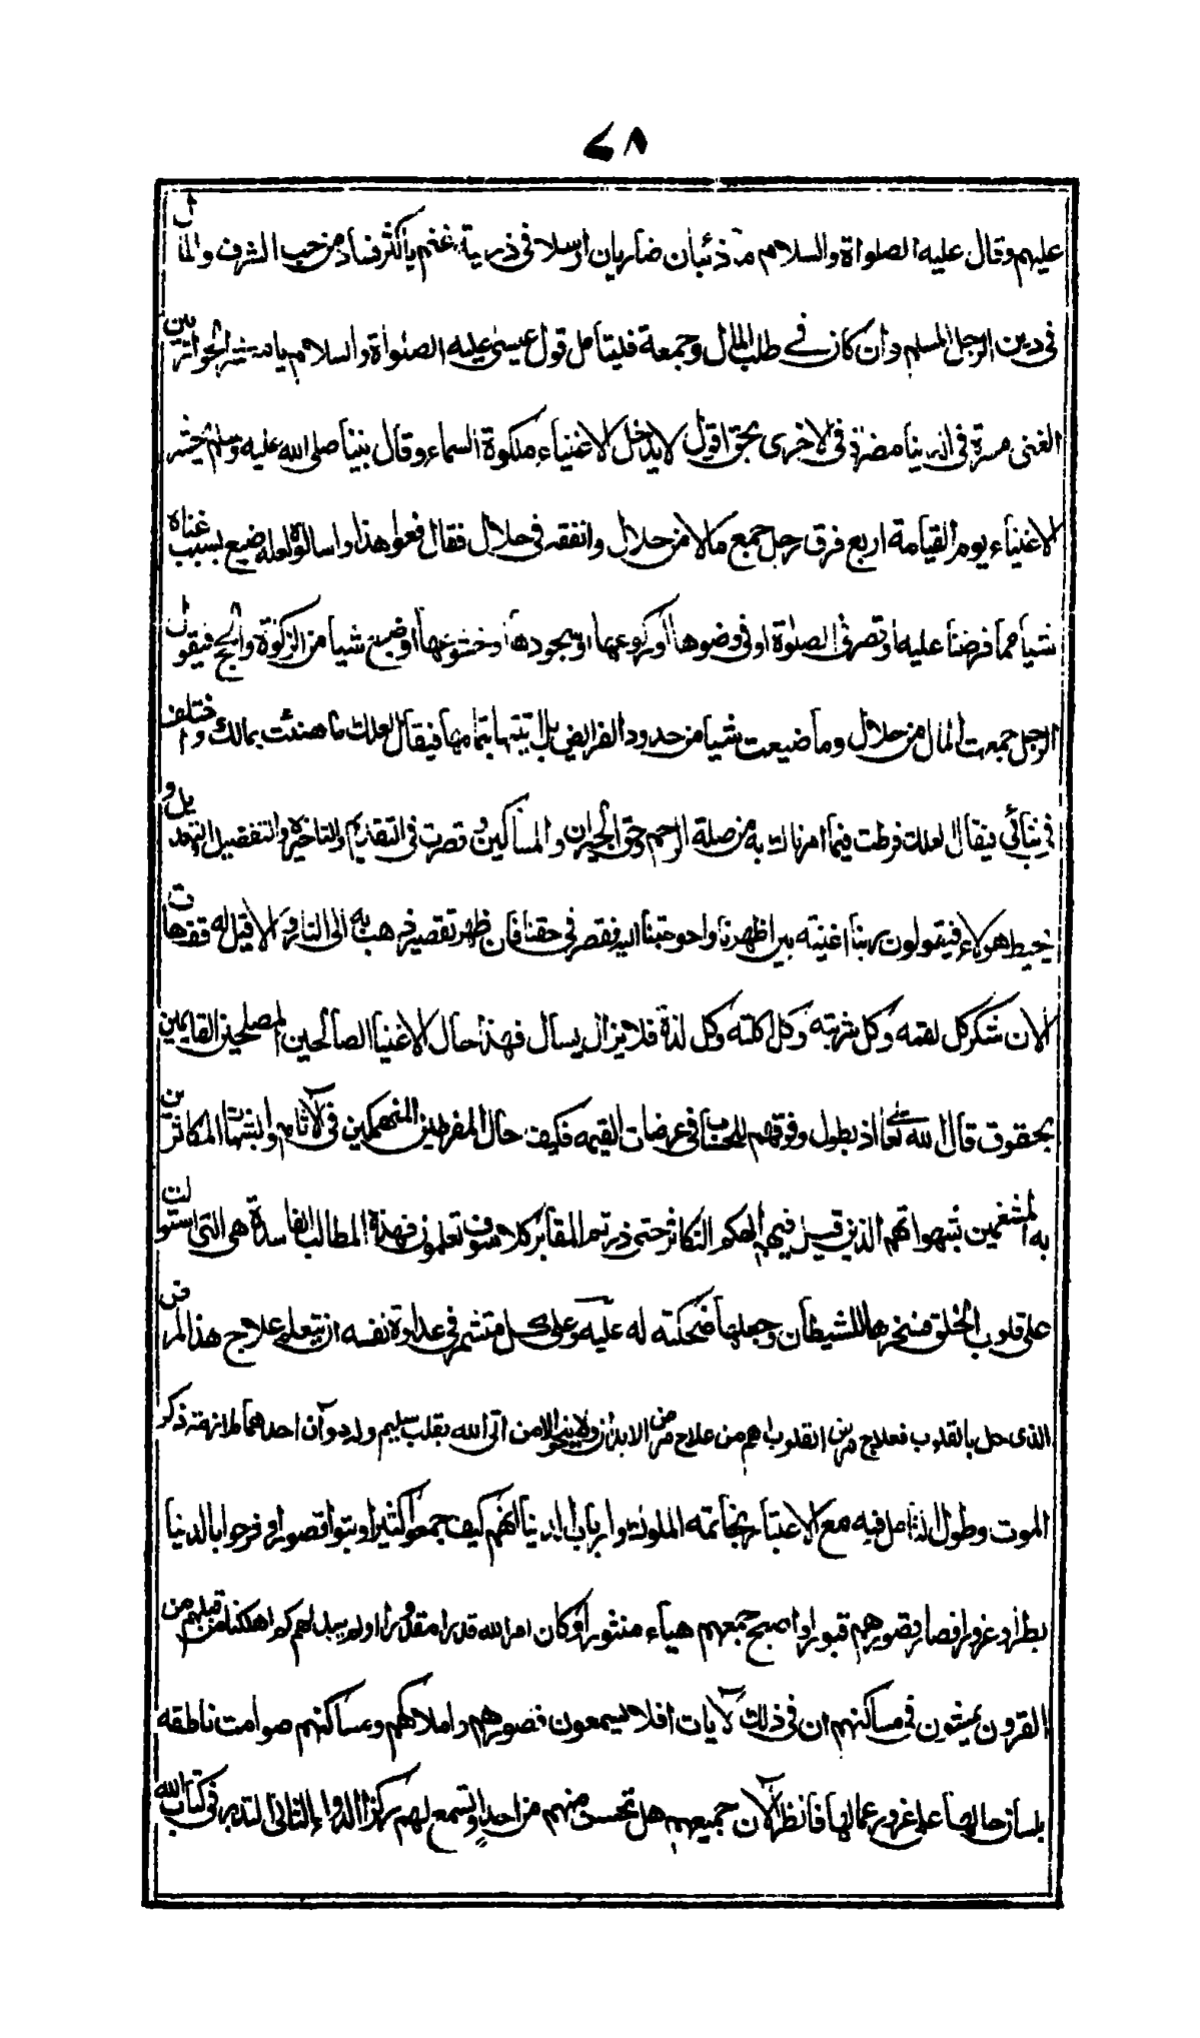 ٤٨
عليهم وقال عليه الصلواة والسلام ما ذئبان ضاريان ارسلا في ذريبة غنم باكثر فسادا من حب الشرف والمال
في دين الرجل المسلم وان كان في طلب المال وجمعه فليتأمل قول عيسى عليه الصلواة والسلام يا معشر الحواريين
الغنى مسرة في الدنيا مضرة في الاخرى بحق اقول لا يدخل الاغنياء ملكوة السماء وقال نبينا صلى الله عليه وسلم يحشر
الاغنياء يوم القيامة اربع فرق رجل جمع مالا من حلال وانفقه في حلال فقال قفوا هذا واسالوه لعله ضيع بسبب غناه
شيا مما فرضنا عليه او قصر في الصلوة او في وضوها او ركوعها او سجودها او خشوعها او ضيع شيا من الزكوة والحج فيقول
الرجل جمعت المال من حلال وما ضيعت شيا من حدود الفرايض بل اتيتها بتمامها فيقال لعلك باهيت بمالك واختلف
في ثيابك فيقال لعلك فرطت فيما امرناك به من صلة الرحم وحق الجيران والمساكين وقصرت في التقديم والتاخير والتفضيل والتعديل و
يحيط هولاء فيقولون ربنا اغنيته بين اظهرنا واحوجتنا اليه فقصر في حقنا فان ظهر تقصير ذهب به الى النار والا قيل له قف هات
الان شكر كل لقمه وكل شربته وكل اكلته وكل لذة فلا يزال يسال فهذا حال الاغنيا الصالحين المصلحين القايمين
بحقوق قال الله تعالى اذ يطول وقوفهم للحساب في عرضات القيمه فكيف حال المفرطين المنهمكين في الآثام والشبهات المكاثرين
به المتنعمين بشهواتهم الذين قيل فيهم الهكم التكاثر حتى زرتم المقابر كلا سوف تعلمون فهذه المطالب الفاسدة هي التي استولت
على قلوب الخلق فسخرها للشيطان وجعلها ضحكته له عليه وعلى كل متشمر في عداوة نفسه ان يتعلم علاج هذا المرض
الذى حل بالقلوب فعلاج مرض القلوب اهم من علاج مرض الابدان ولا ينجو الا من اتى الله بقلب سليم وله دوآن احدهما ملازمته ذكر
الموت وطول التامل فيه مع الاعتبار بخاتمته الملوك وارباب الدنيا انهم كيف جمعوا كثيرا وبنوا قصورا وفرحوا بالدنيا
بطرا وغرورا فصار قصورهم قبورا واصبح جمعهم هباء منثورا وكان امر الله قدرا مقدورا اولم يهد لهم كم اهلكنا من قبلهم من
القرون يمشون في مساكنهم ان في ذلك لآيات افلا يسمعون فصورهم واملاكهم ومساكنهم صوامت ناطقه
بلسان حالها على غرور عمالها فانظر الآن جميعهم هل تحس منهم من احد او تسمع لهم ركزا الدواء الثانى التدبر في كتاب الله